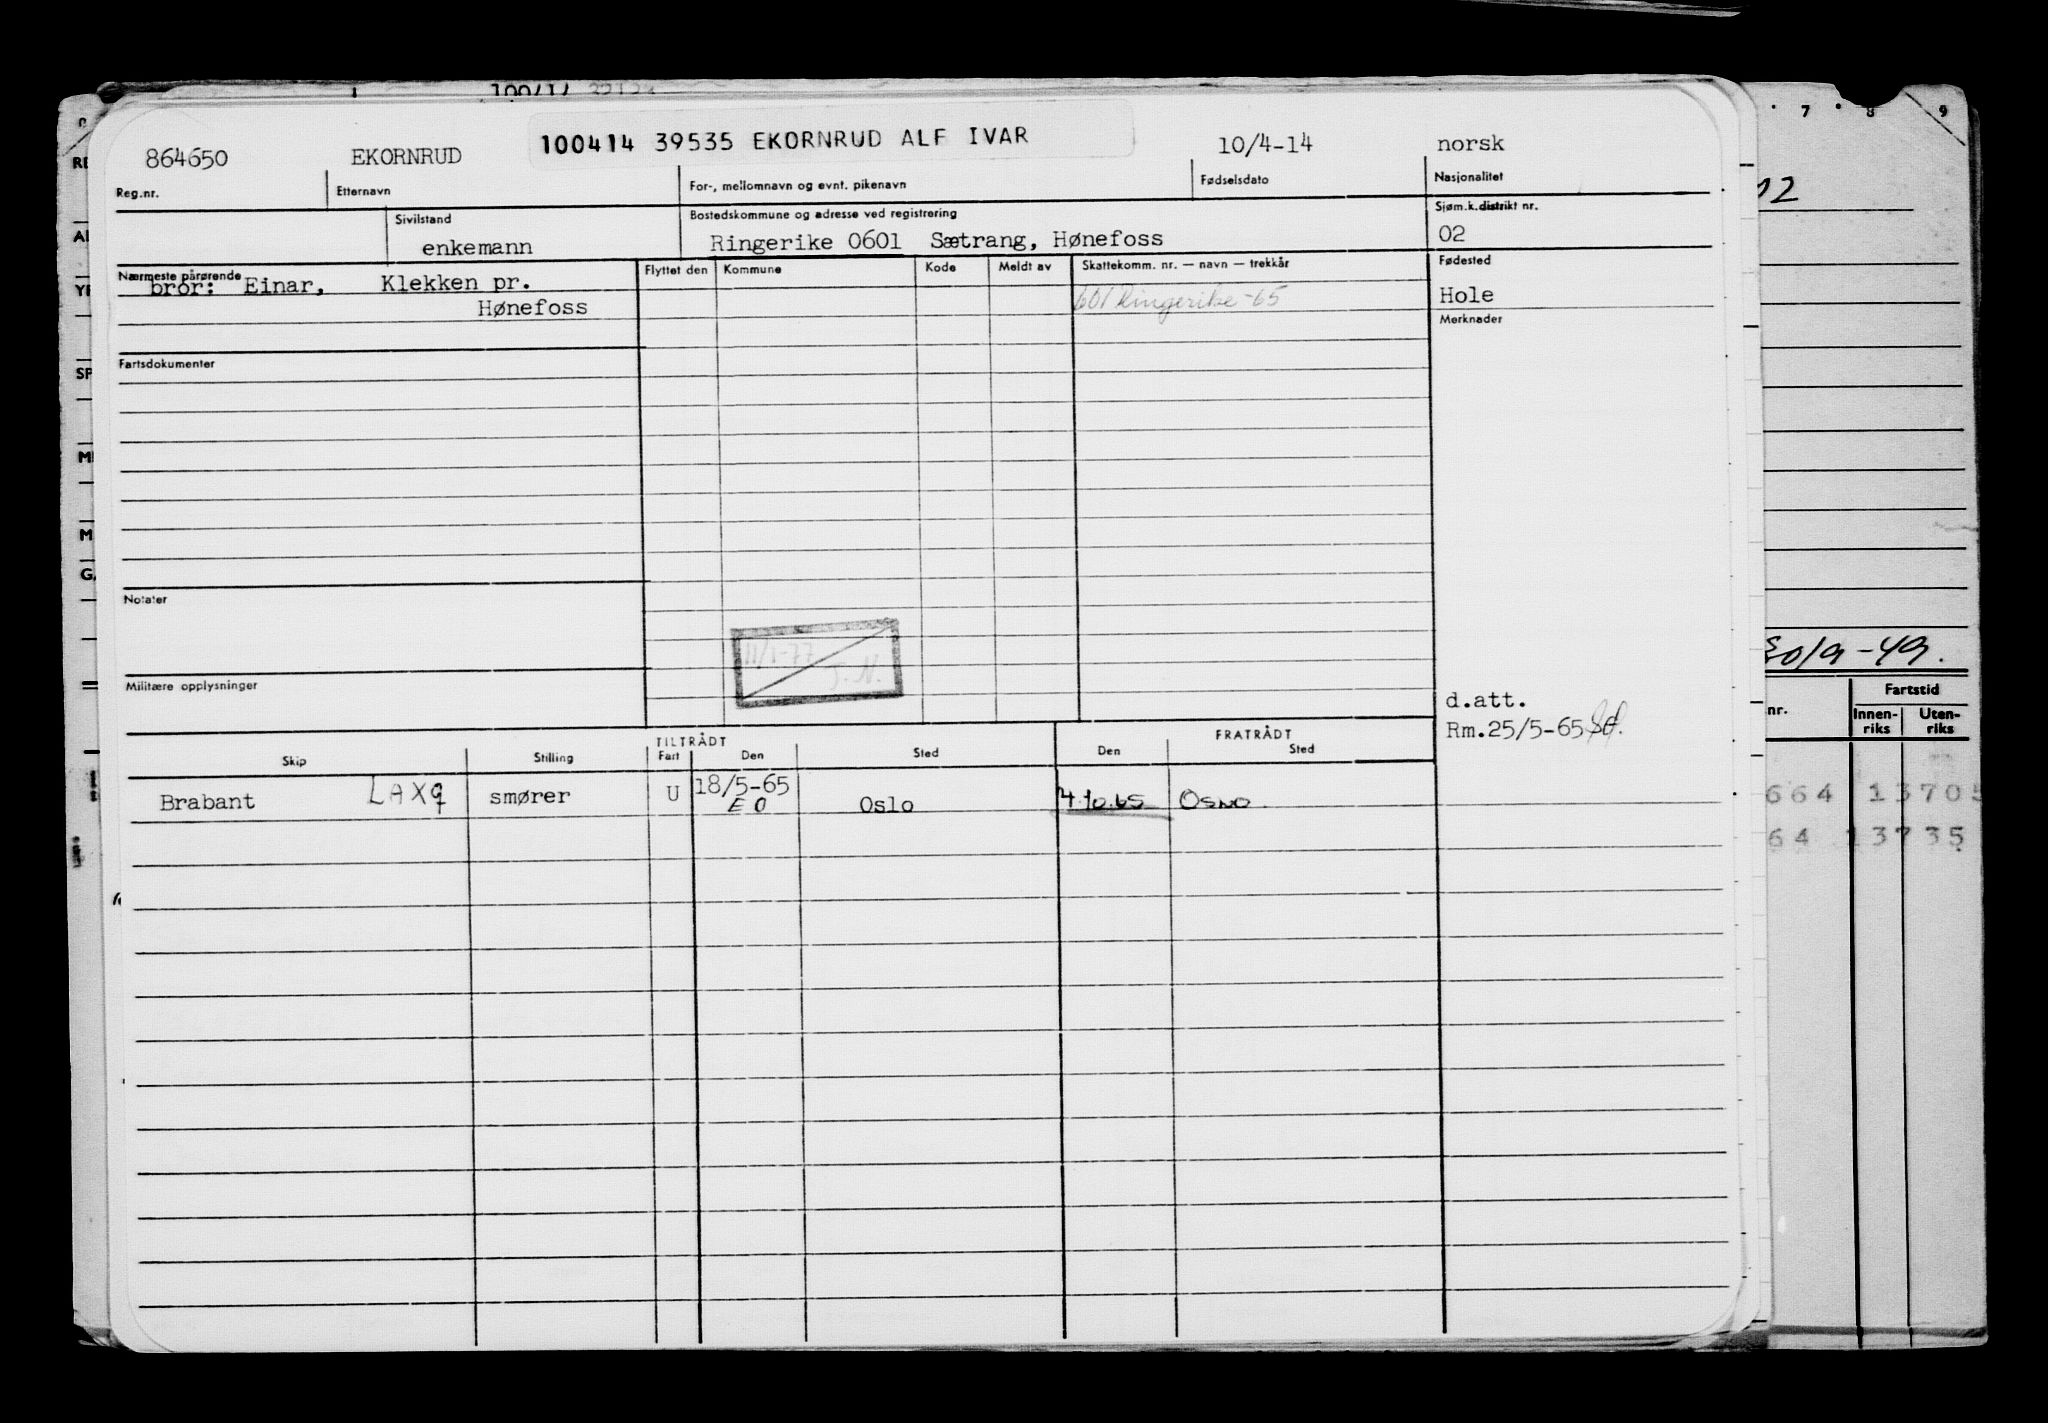 864650 EKORNRUD 100414 39535 EKORNRUD ALF IVAR 10/4-14 norsk
Reg.nr. Etternavn For-, mellomnavn og evnt. pikenavn Fødselsdato Nasjonalitet
Sivilstand Bostedskommune og adresse ved registrering Sjøm.k.distrikt nr.
enkemann Ringerike 0601 Sætrang, Hønefoss 02
Nærmeste pårørende Flyttet den Kommune Kode Meldt av Skattekomm. nr. — navn — trekkår Fødested
bror: Einar, Klekken pr. Hole
Hønefoss 601 Ringerike -65
Merknader
Fartsdokumenter
Notater
11/1-77
J.N.
Militære opplysninger
d.att.
Rm.25/5-65
TILTRÅDT FRATRÅDT
Skip Stilling Fart Den Sted Den Sted
Brabant LAXQ smører U 18/5-65 Oslo 4.10.65 OSLO
EO
7 8 9
30/9-49.
nr. Fartstid
Innen-riks Uten-riks
664 13705
64 13735